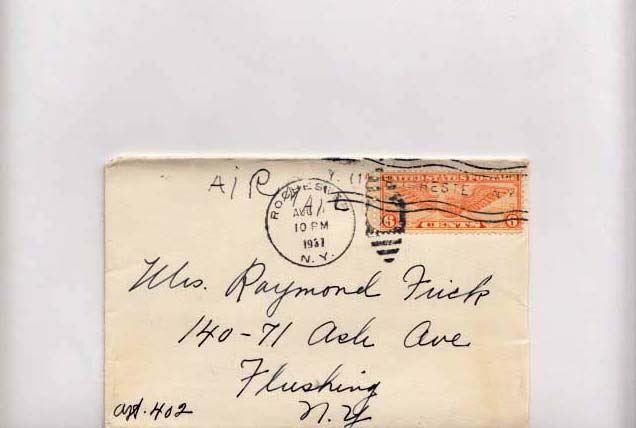 AIR MAIL
ROCHESTER
AUG
10 PM
1937
N.Y.
UNITED STATES POSTAGE
6 CENTS 6
Mrs. Raymond Frick
140-71 Ash Ave
Flushing
apt. 402
N.Y